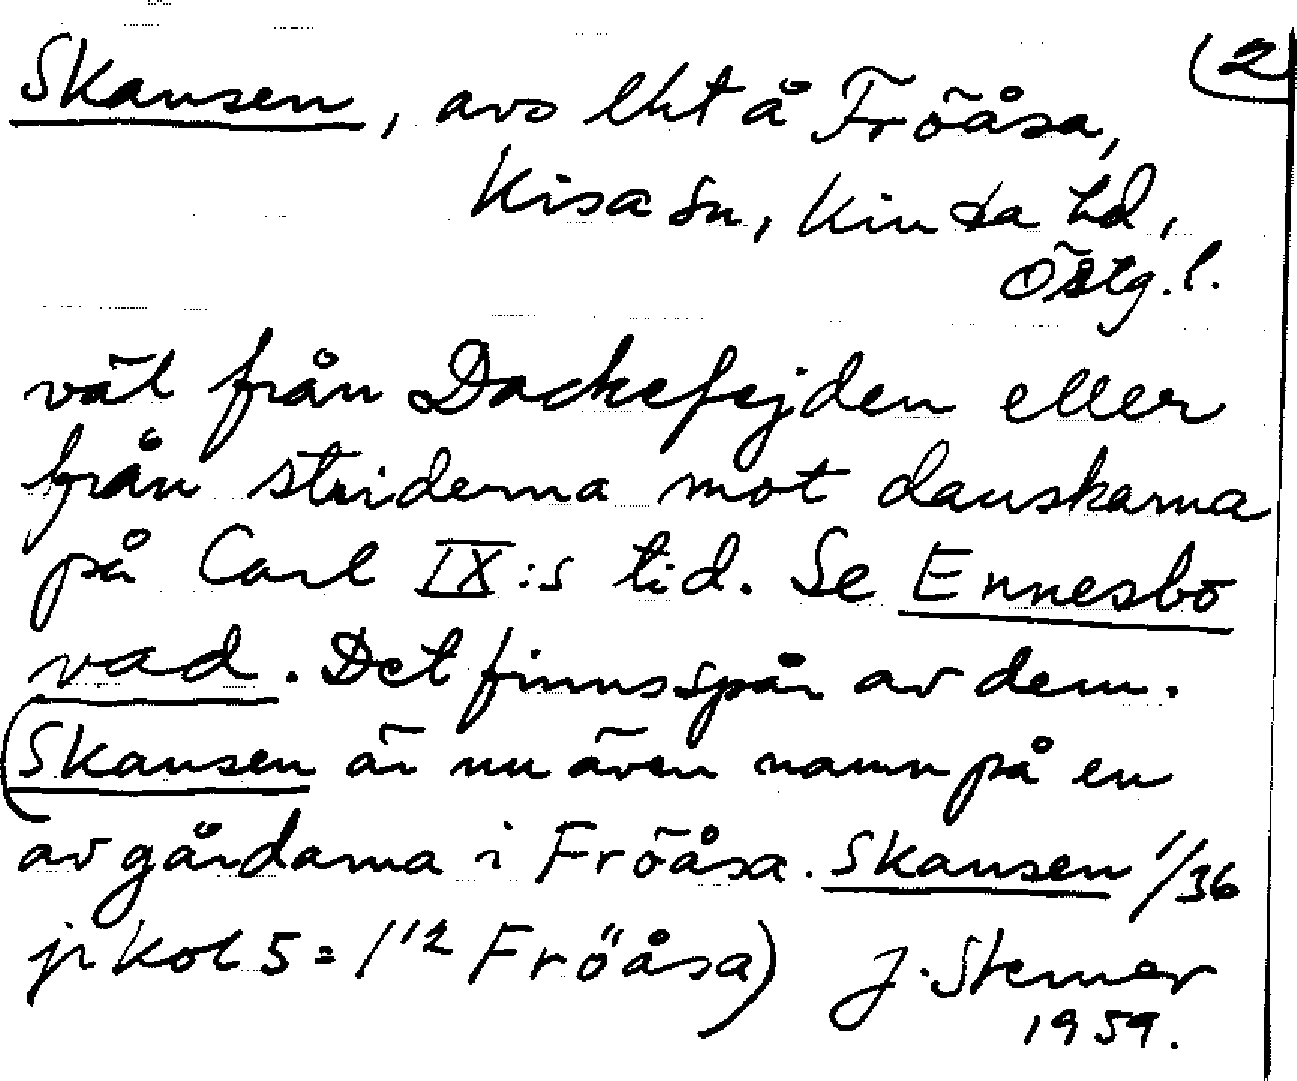 (2
Skansen, avs lht å Fröåsa,
Kisa sn, Kinda hd,
Östg. l.
väl från Dackefejden eller
från striderna mot danskarna
på Carl IX:s tid. Se Ennesbo
vad. Det finns spår av dem.
(Skansen är nu även namn på en
av gårdarna i Fröåsa. Skansen 1/36
jr kol 5 = 1/2 Fröåsa) J. Sterner
1959.